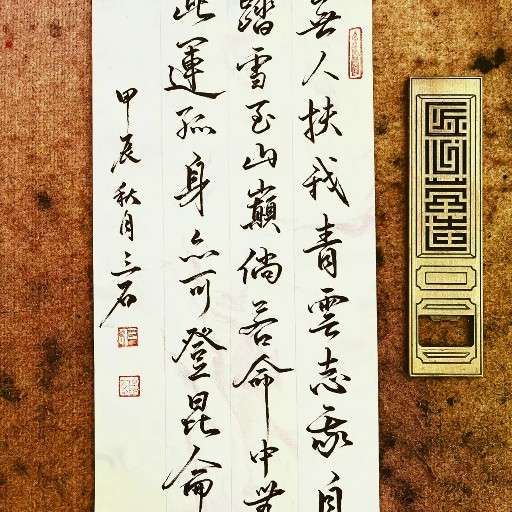 無人扶我青雲志我自
踏雪至山巔倘若命中無
此運孤身亦可登昆侖
甲辰秋月三石